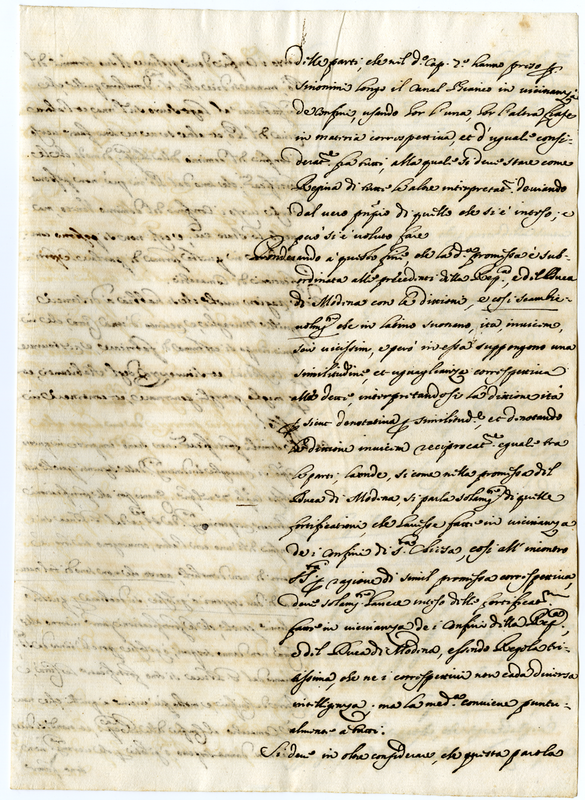 delle parti, che nel d.º Cap. 7.º hanno preso p.
sinonimi longo il Canal Bianco in vicinanza
de Confini, usando hor l'una, hor l'altra frase
in materia correspettiva, et d'uguale consi-
derat.ne fra tutti, alla quale si deve stare come
Regina di tutte le altre interpretat.ni deviando
dal vero senso di quello che si è inteso; e
però si è voluto fare
Ponderando a questo fine, che la d.ª promissa è sub-
ordinata alle precedenti della Rep.ca, e del Duca
di Modena con la dittione, e così scambie-
volm.te che in latino suonano, ita, invicem,
seu vicissim, e però in essa suppongono una
similitudine et eguaglianza correspettiva
alle detti, interpretandosi la dittione ita
sicut denotativa p. similitud.e, et denotando
la dittione invicem reciprocat.ne eguale tra
le parti; laonde, si come nella promissa del
Duca di Modena, si parla solam.te di quelle
fortificationi che havesse fatte in vicinanza
de i Confini di S.ta Chiesa, così all' incontro
p. ragione di simil promissa correspettiva,
deve solam.te havere inteso delle fortificat.ni
fatte in vicinanza de i Confini della Rep.ca,
e del Duca di Modena, essendo Regola tri-
tissima, che ne i correspettivi non cada diversa
intelligenza, ma la med.ma conviene puntu-
almente a tutti.
Si deve in oltre considerare, che questa parola